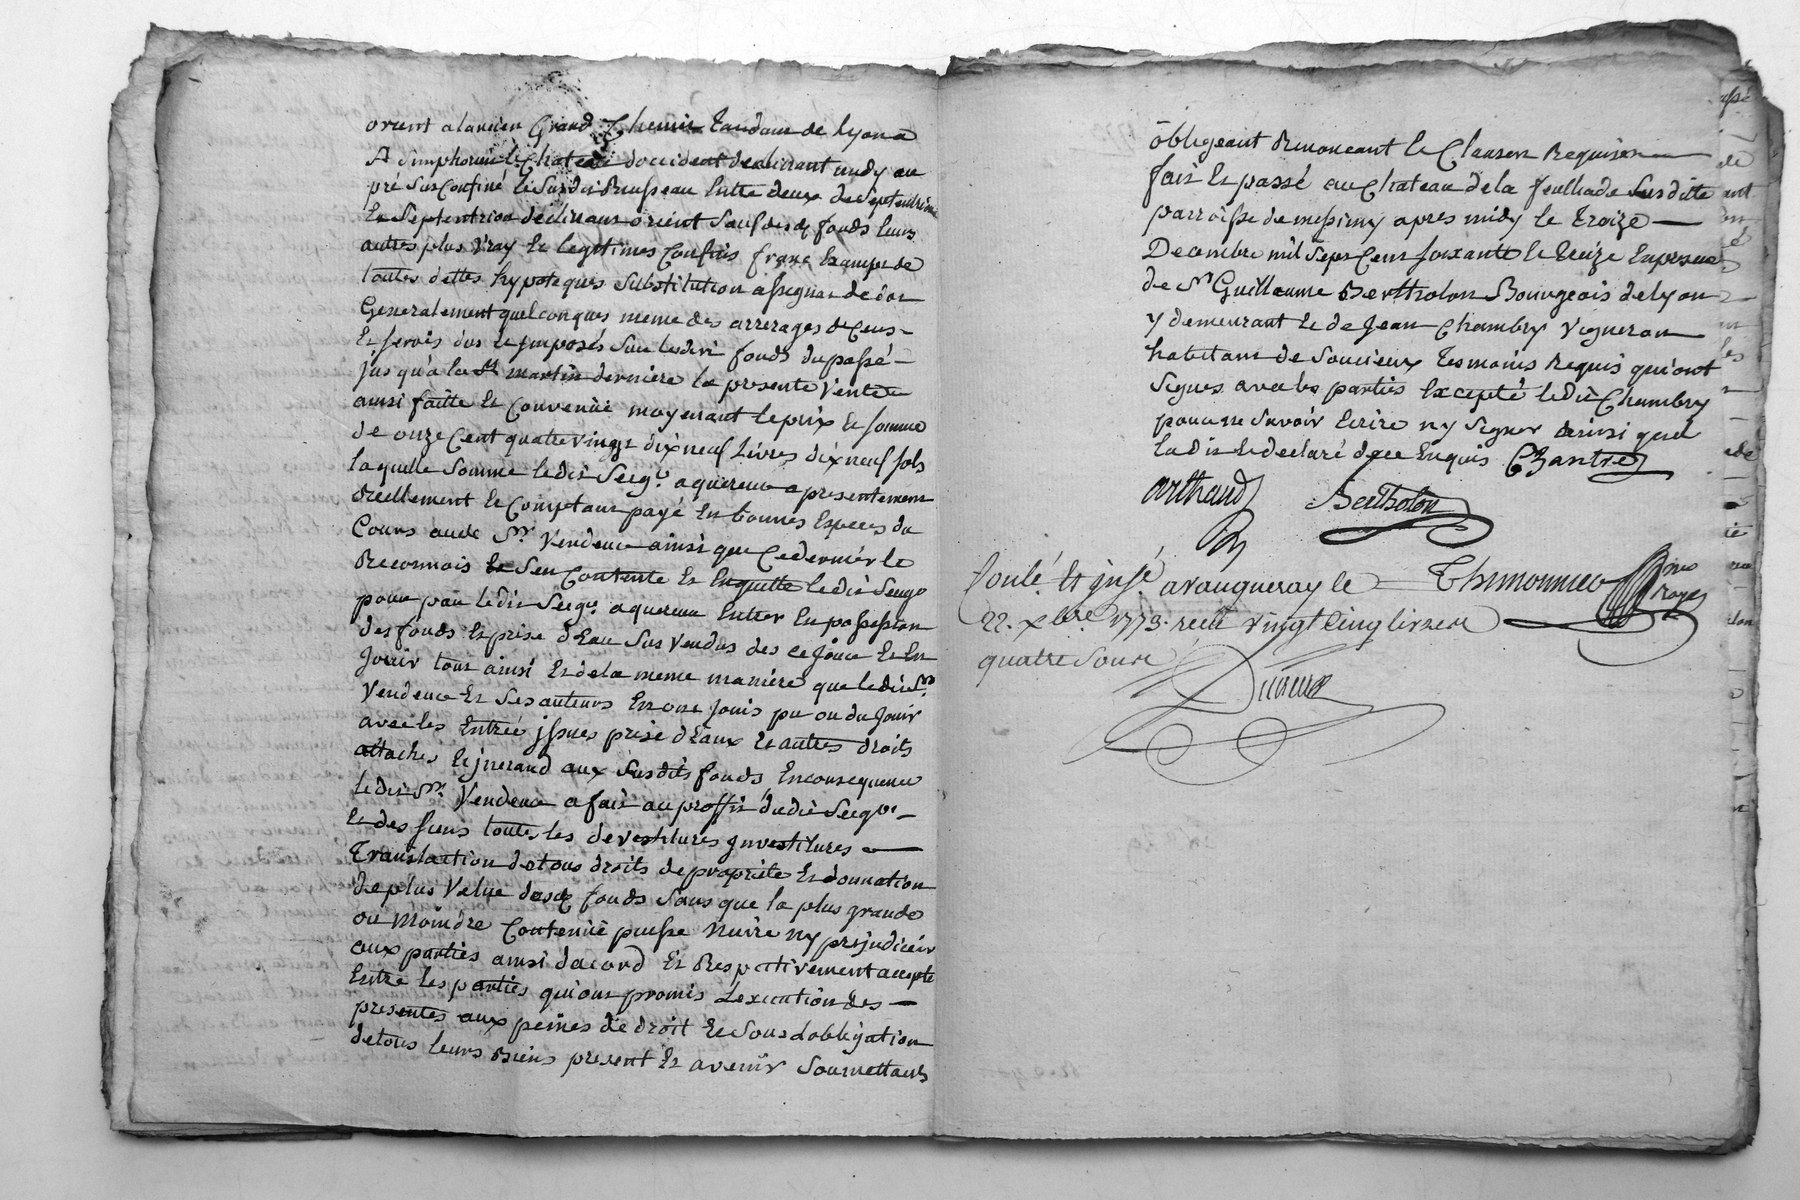 orient a lancien Grand Chemin Tandant de lyon a
St Simphorien le Chateau doccident declinant midy au
pré Sus Confiné le Susdit Ruisseau Entre deux de Septentrion
Et Septentrion declinant orient Sauf desd fonds leurs
autres plus vray Et legitimes Confins franc Exempt de
toutes dettes hypoteques Substitution assignat de dot
Generalement quelconques meme des arrerages de Cens
Et servis dus et jmposés Sur lesdits fonds du passé
jusqu'à la St martin derniere la presente Vente
ainsi faitte Et Convenüe moyenant le prix Et somme
de onze Cent quatre vingt dix neuf Livres dix neuf sols
laquelle Somme ledit Seigr aquereur a presentement
Reellement Et Comptant payé En bonnes Especes du
Cours aud Sr Vendeur ainsi que Ce dernier le
Reconnois Se Sen Contente Et En quitte ledit Seigr
pour par ledit Seigr aquereur Entrer En possession
des fonds Et prise dEau Sus Vendus des ce jour Et En
Jouir tout ainsi Et de la meme maniere que ledit Sr
Vendeur Et Ses auteurs En ont jouis pu ou du Jouir
avec les Entrée jssues prise dEaux Et autres droits
attachés Et jnerand aux Susdits fonds En consequence
ledit Sr Vendeur a fait au proffit dudit Seigr
Et des siens toutes les devestitures jnvestitures
Translaction de tous droits de propriete Et donnation
de plus Value desd fonds Sans que la plus grande
ou Moindre Contenüe puisse Nuire ny prejudicier
aux parties ainsi dacord Et Respectivement accepté
Entre les parties qui ont promis Lexecution des
presentes aux peines de droit Et Sous lobligation
de tous leurs Biens present Et avenir Soumettants
obligeant Renonceant Et Clauses Requises
fait Et passé au Chateau de la feuillade Susditte
parroisse de messimy apres midy le Traize
Decembre mil Sept Cent soixante Et Treize En presence
de Sr Guillaume Bertholon Bourgeois de lyon
y demeurant Et de Jean Chambry Vigneron
habitant de Soucieux Tesmoins Requis qui ont
Signes avec les parties Excepté ledit Chambry
pour ne Savoir Ecrire ny Signer ainsi quil
La dit Et declaré de ce Enquis Chantre
arthaud Bertholon
Conlé Et jnsé a vaugneray le Thimonnier
22. xbre 1773. recu vingt Cinq livres
quatre Sous